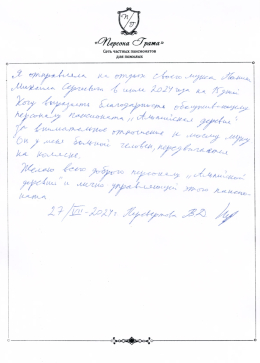 «Персона Грата»
Сеть частных пансионатов
для пожилых
Я отправляла на отдых своего мужа
Михаила Сергеевича в июле 2024 года на
Хочу выразить благодарность
персоналу пансионата „Альпийская деревня"
за внимательное отношение к моему мужу
Он у меня больной человек, передвигается
на коляске.
Желаю всего доброго персоналу „Альпийской
деревни" и лично управляющей этого пансио-
ната
27/VII-2024г